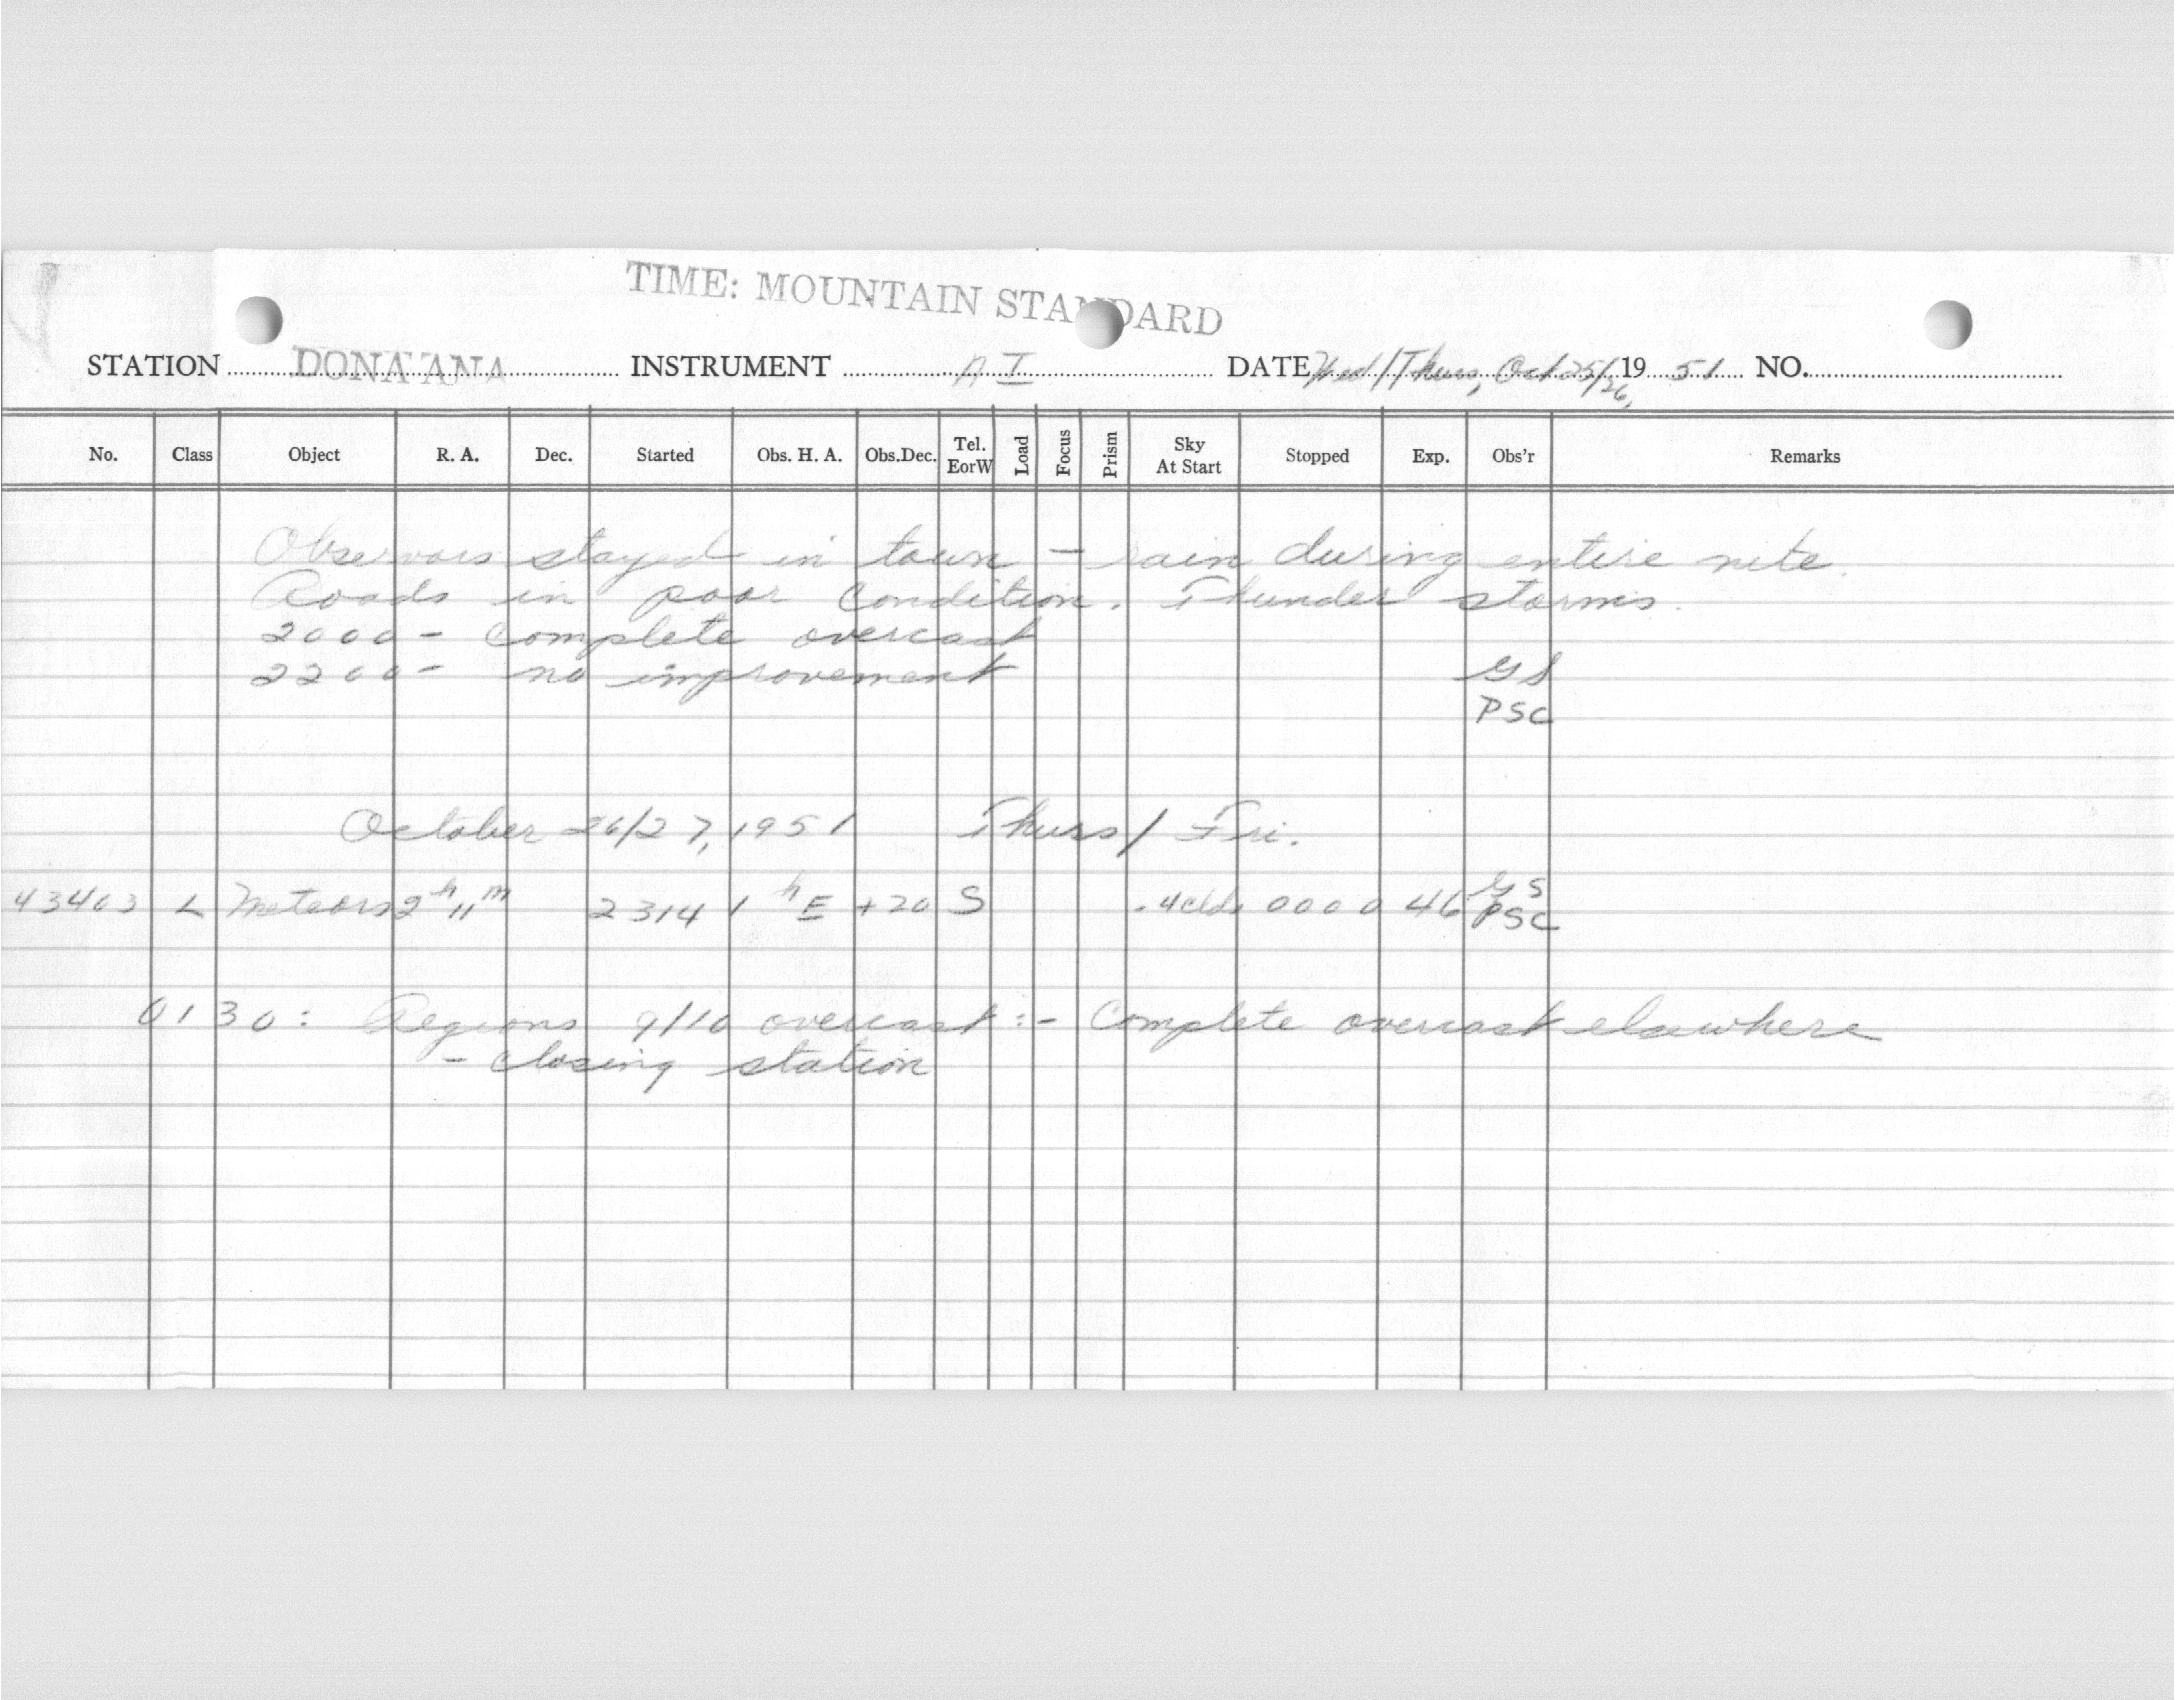 TIME: MOUNTAIN STANDARD
STATION DONA ANA INSTRUMENT A I DATE Wed/Thurs, Oct 25/26, 1951 NO.
No. Class Object R. A. Dec. Started Obs. H. A. Obs.Dec. Tel. EorW Load Focus Prism Sky At Start Stopped Exp. Obs'r Remarks
Observors stayed in town - rain during entire nite.
Roads in poor condition. Thunder storms.
2000 - complete overcast
2200 - no improvement GS
PSC
October 26/27, 1951 Thurs/Fri.
43403 L Meteors 2h 11m 2314 1hE +20 S .4clds 0000 46 GS PSC
0130: Regions 9/10 overcast :- Complete overcast elsewhere
- closing station